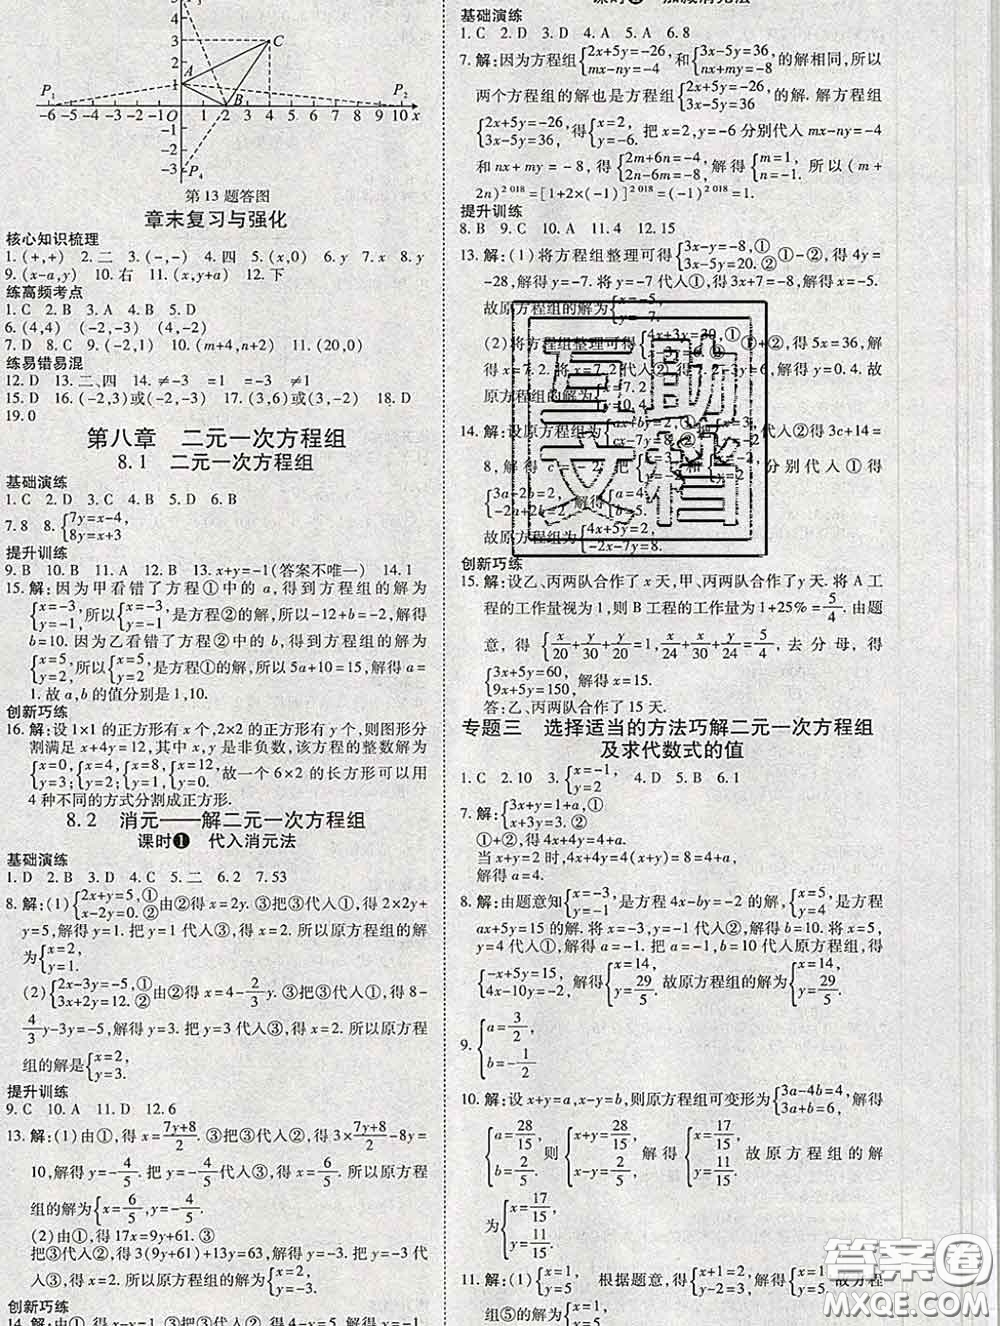 5
4
3
2
C
A
P₁
P₂
B
-6 -5 -4 -3 -2 -1 O 1 2 3 4 5 6 7 8 9 10 x
-1
-2
-3
P₄
第13题答图
章末复习与强化
核心知识梳理
1.(+,+) 2.二 3.(-,-) 4.四 5.(x,0) 6.y 7.x 8.y
9.(x-a,y) 10.右 11.(x,y+a) 12.下
练高频考点
1.C 2.B 3.A 4.B 5.D
6.(4,4) (-2,-3) (4,-2)
7.D 8.C 9.(-2,1) 10.(m+4,n+2) 11.(20,0)
练易错易混
12.D 13.二、四 14.≠-3 =1 =-3 ≠1
15.D 16.(-2,3)或(-2,-3) 17.(3,6)或(3,-2) 18.D
19.0
第八章 二元一次方程组
8.1 二元一次方程组
基础演练
1.C 2.C 3.D 4.A 5.D 6.B
7.8 8.{7y=x-4, 8y=x+3
提升训练
9.B 10.B 11.A 12.B 13.x+y=-1(答案不唯一) 14.1
15.解:因为甲看错了方程①中的a,得到方程组的解为
{x=-3, y=-1,所以{x=-3, y=-1,是方程②的解,所以-12+b=-2,解得
b=10.因为乙看错了方程②中的b,得到方程组的解为
{x=5, y=2,所以{x=5, y=2,是方程①的解,所以5a+10=15,解得a=
1.故a,b的值分别是1,10.
创新巧练
16.解:设1×1的正方形有x个,2×2的正方形有y个,则图形分
割满足x+4y=12,其中x,y是非负数,该方程的整数解为
{x=0, y=3;{x=4, y=2;{x=8, y=1;{x=12, y=0,故一个6×2的长方形可以用
4种不同的方式分割成正方形.
8.2 消元——解二元一次方程组
课时❶ 代入消元法
基础演练
1.D 2.B 3.D 4.C 5.二 6.2 7.53
8.解:(1){2x+y=5,① x-2y=0.②由②得x=2y.③把③代入①,得2×2y+
y=5,解得y=1.把y=1代入③,得x=2.所以原方程组的解
为{x=2, y=1.
(2){2x-3y=-5,① 3x+2y=12.②由②得x=4-2/3y.③把③代入①,得8-
4/3y-3y=-5,解得y=3.把y=3代入③,得x=2.所以原方程
组的解是{x=2, y=3.
提升训练
9.C 10.A 11.D 12.6
13.解:(1)由①,得x=(7y+8)/2.③把③代入②,得3×(7y+8)/2-8y=
10,解得y=-4/5.把y=-4/5代入③,得x=6/5.所以原方程
组的解为{x=6/5, y=-4/5.
(2)由①,得17x=9y+61.③
把③代入②,得3(9y+61)+13y=103,解得y=-2.把y=-2代
入③,得x=
创新巧练
基础演练
1.C 2.D 3.D 4.A 5.A 6.8
7.解:因为方程组{2x+5y=-26, mx-ny=-4和{3x-5y=36, nx+my=-8的解相同,所以
两个方程组的解也是方程组{2x+5y=-26, 3x-5y=36的解.解方程组
{2x+5y=-26, 3x-5y=36,得{x=2, y=-6.把x=2,y=-6分别代入mx-ny=-4
和nx+my=-8,得{2m+6n=-4, 2n-6m=-8,解得{m=1, n=-1.所以(m+
2n)²⁰¹⁸=[1+2×(-1)]²⁰¹⁸=(-1)²⁰¹⁸=1.
提升训练
8.B 9.C 10.A 11.4 12.15
13.解:(1)将方程组整理可得{3x-y=-8,① 3x-5y=20.②①-②,得4y=
-28,解得y=-7.将y=-7代入①,得3x+7=-8,解得x=-5.
故原方程组的解为{x=-5, y=-7.
(2)将方程组整理可得
解得x=7.2.将x=7.2代入②
解得y=0.4.故
原方程组的解为{x=7.2, y=0.4.
14.解:设原方程组为{ax+by=2,① cx-7y=8.②
代入②得3c+14=
8,解得c=-2.
分别代入①得
{3a-2b=2, -2a+2b=2,解得{a=4, b=5.
故原方程组为{4x+5y=2, -2x-7y=8.
创新巧练
15.解:设乙、丙两队合作了x天,甲、丙两队合作了y天.将A工
程的工作量视为1,则B工程的工作量为1+25%=5/4.由题
意,得{x/20+y/30+y/20=1, x/30+x/24+y/24=5/4,去分母,得
{3x+5y=60, 9x+5y=150,解得x=15.
答:乙、丙两队合作了15天.
专题三 选择适当的方法巧解二元一次方程组
及求代数式的值
1.C 2.10 3.{x=-1, y=2 4.D 5.B 6.1
7.解:{3x+y=1+a,① x+3y=3.②
①+②,得4x+4y=4+a.
当x+y=2时,4x+4y=4(x+y)=8=4+a.
解得a=4.
8.解:由题意知{x=-3, y=-1,是方程4x-by=-2的解,{x=5, y=4,是方程
ax+5y=15的解.将x=-3,y=-1代入②,解得b=10.将x=5,
y=4代入①,解得a=-1.把a=-1,b=10代入原方程组,得
{-x+5y=15, 4x-10y=-2,解得{x=14, y=29/5.故原方程组的解为{x=14, y=29/5.
9.{a=3/2, b=-1/2
10.解:设x+y=a,x-y=b,则原方程组可变形为{3a-4b=4, 3a+b=6,解得
{a=28/15, b=2/5.则{x+y=28/15, x-y=2/5.解得{x=17/15, y=11/15.故原方程组的解
为{x=17/15, y=11/15.
11.解:(1){x=1, y=5 根据题意,得{x+1=2, y-2=3,解得{x=1, y=5.故方程
组⑤的解为{x=1,
互助文档
答案圈
MXQE.COM